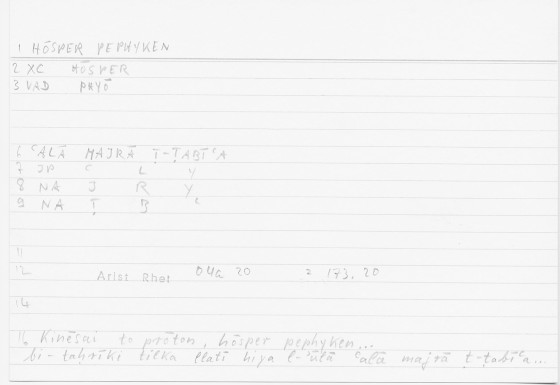 1 HŌSPER PEPHYKEN
2 XC HŌSPER
3 VAD PHYŌ
6 ʿALĀ MAJRĀ Ṭ-ṬABĪʿA
7 JP ʿ L Y
8 NA J R Y
9 NA Ṭ B ʿ
11
12 Arist Rhet 04a 20 = 173, 20
14
16 Kinēsai to prōton, hōsper pephyken...
bi-taḥrīki tilka llatī hiya l-ʾūlā ʿalā majrā ṭ-ṭabīʿa...